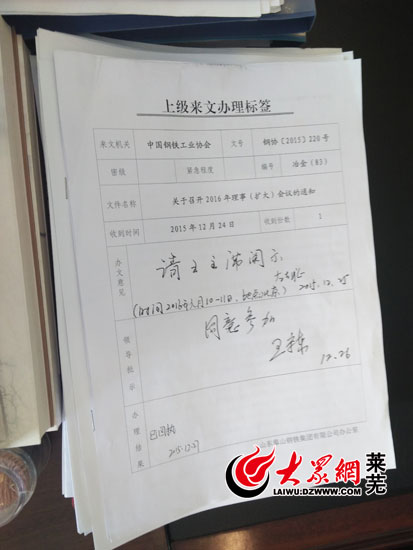 上级来文办理标签
来文机关 中国钢铁工业协会 文号 钢协〔2015〕220号
密级 紧急程度 编号 冶金(83)
文件名称 关于召开2016年理事(扩大)会议的通知
收到时间 2015年12月24日 收到份数 1
办文意见
请王主席阅示
2015.12.25
(时间2016年1月10-11日,地点北京)
领导批示
同意参加
12.26
办理结果
已回执
2015.12.27
山东泰山钢铁集团有限公司办公室
大眾網 莱芜
LAIWU.DZWWW.COM